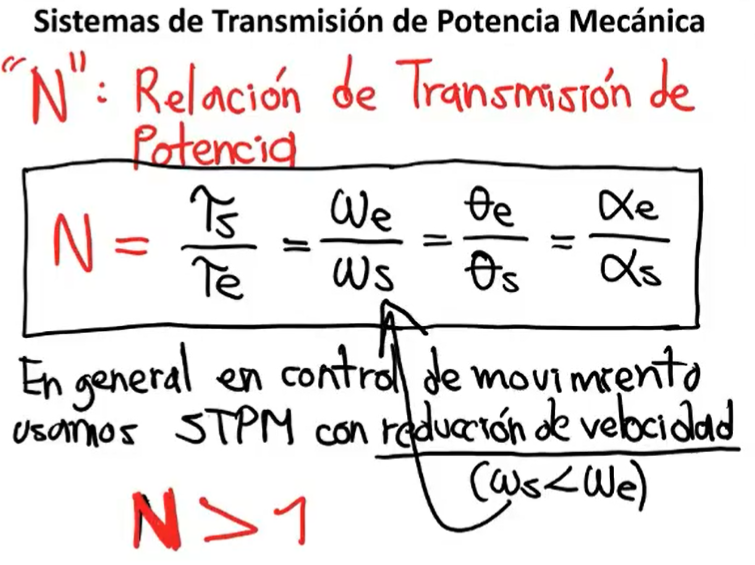 Sistemas de Transmisión de Potencia Mecánica
"N": Relación de Transmisión de
Potencia
N = τs/τe = ωe/ωs = θe/θs = αe/αs
En general en control de movimiento
usamos STPM con reducción de velocidad
(ωs<ωe)
N > 1